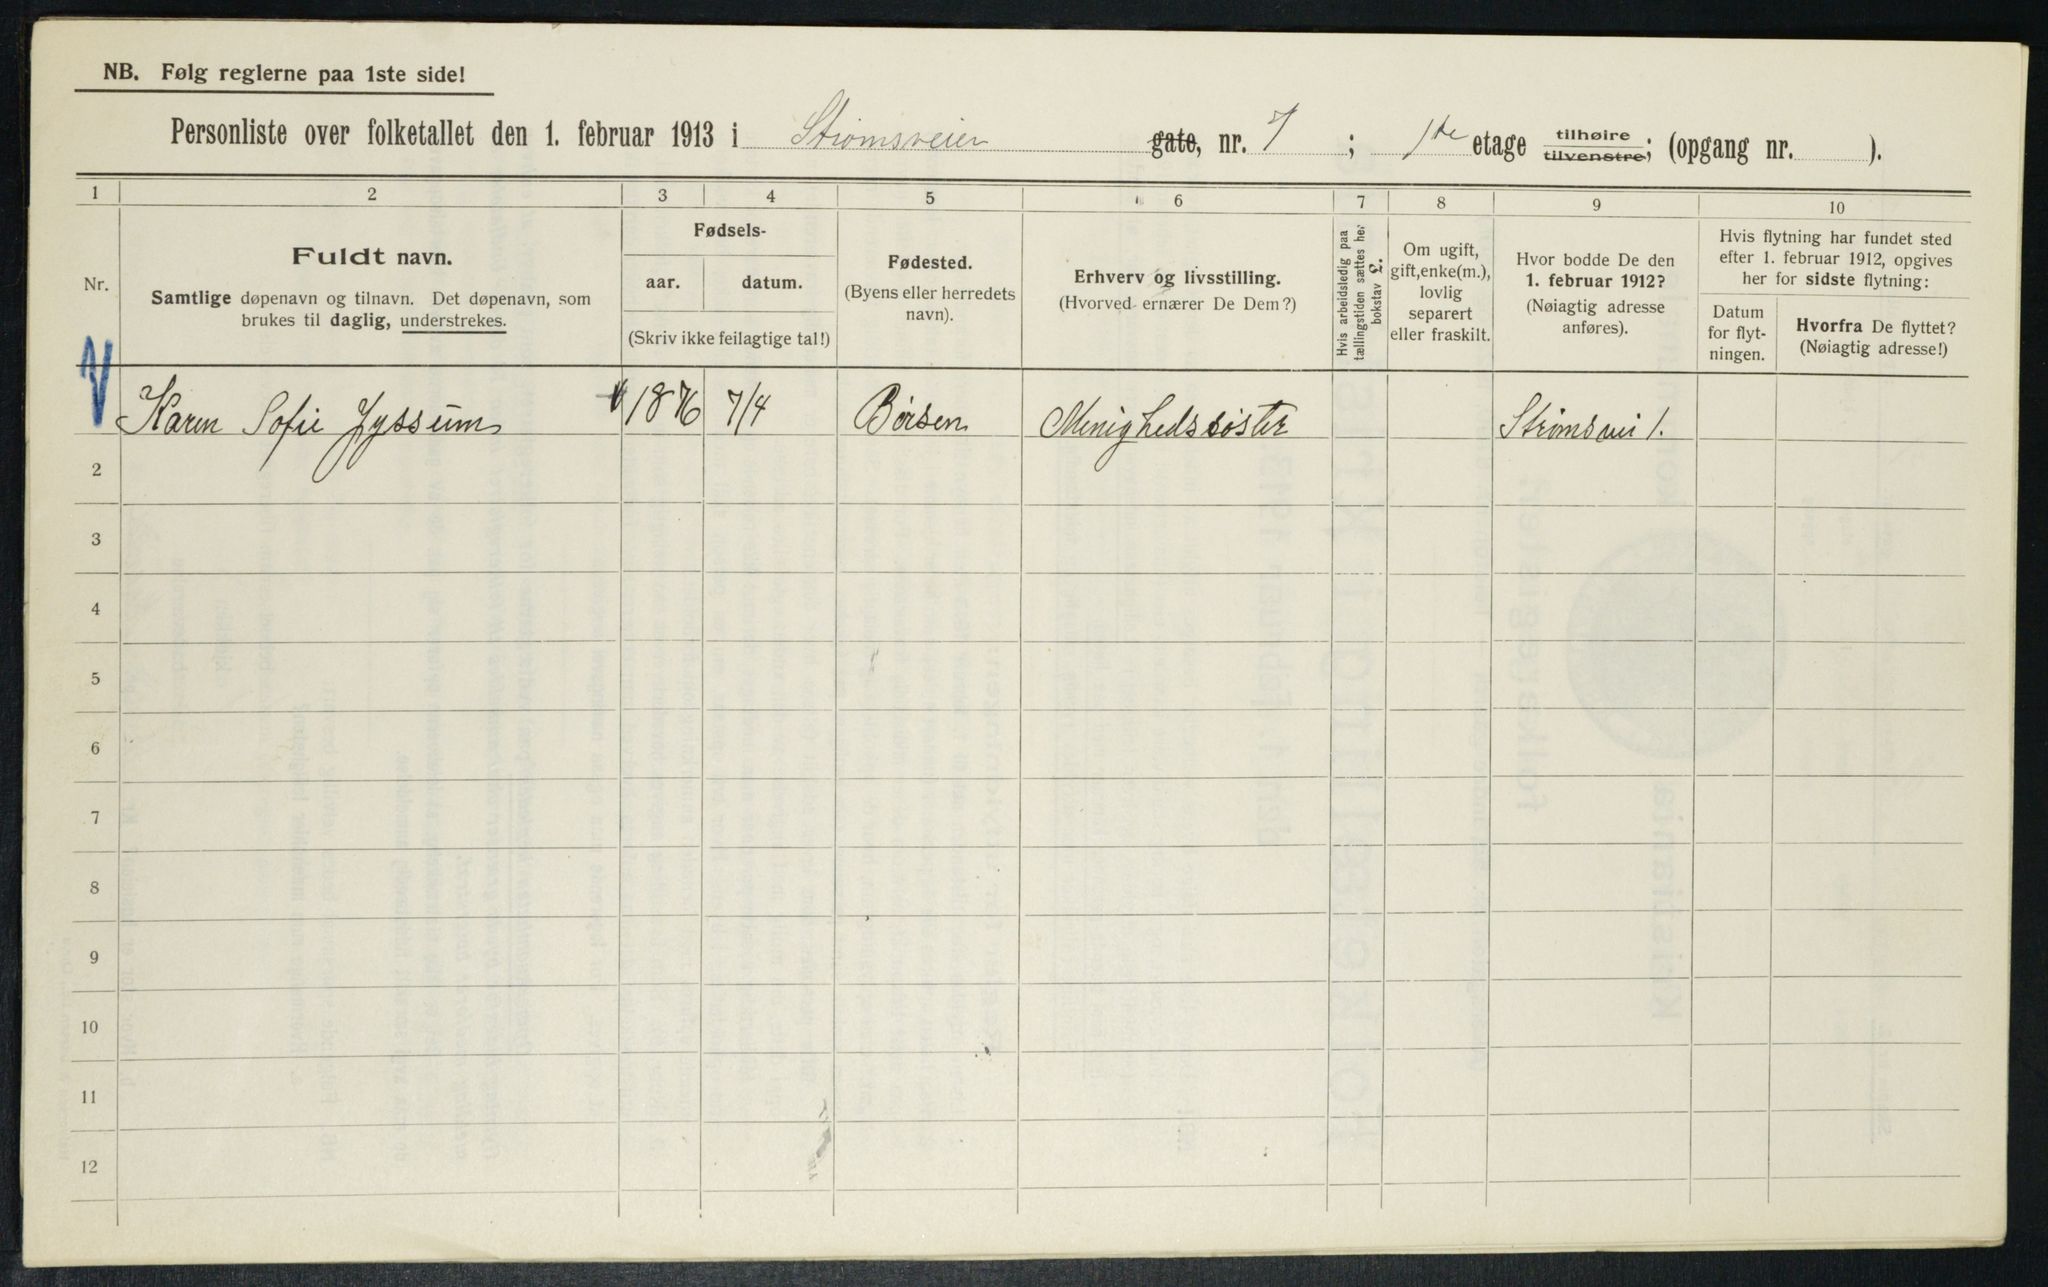 NB. Følg reglerne paa 1ste side!
Personliste over folketallet den 1. februar 1913 i Strømsveien gate, nr. 7; 1ste etage tilhøire tilvenstre; (opgang nr. ).
1 2 3 4 5 6 7 8 9 10
Nr.
Fuldt navn.
Samtlige døpenavn og tilnavn. Det døpenavn, som
brukes til daglig, understrekes.
Fødsels-
aar. datum.
(Skriv ikke feilagtige tal!)
Fødested.
(Byens eller herredets
navn).
Erhverv og livsstilling.
(Hvorved ernærer De Dem?)
Hvis arbeidsledig paa
tællingstiden sættes her
bokstav L.
Om ugift,
gift, enke(m.),
lovlig
separert
eller fraskilt.
Hvor bodde De den
1. februar 1912?
(Nøiagtig adresse
anføres).
Hvis flytning har fundet sted
efter 1. februar 1912, opgives
her for sidste flytning:
Datum
for flyt-
ningen.
Hvorfra De flyttet?
(Nøiagtig adresse!)
Karen Sofie Jyssum 1876 7/4 Børsen Menighedssøster Strømsvei 1.
2
3
4
5
6
7
8
9
10
11
12